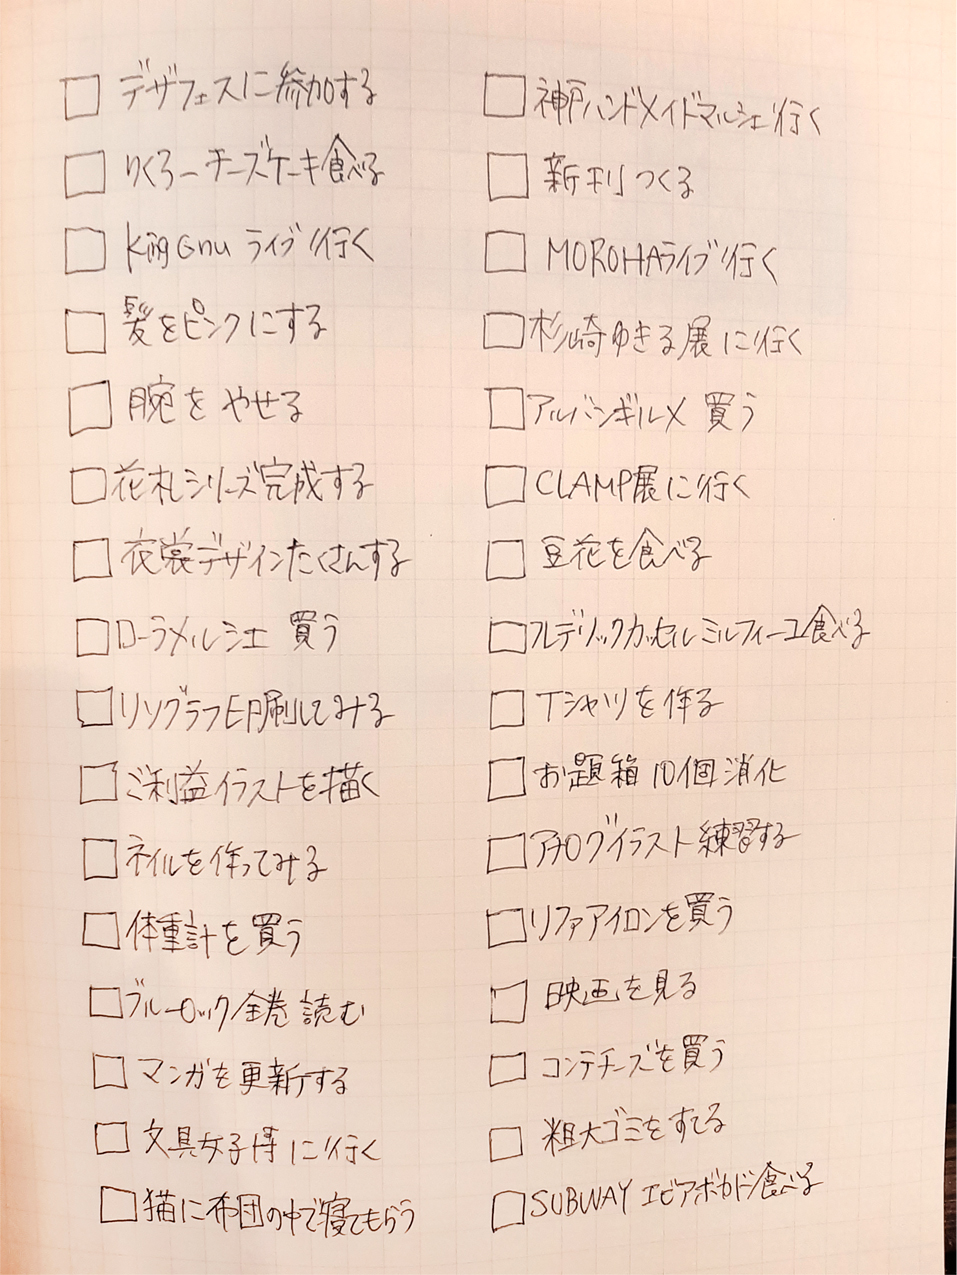 デザフェスに参加する
りくろーチーズケーキ食べる
King Gnu ライブ行く
髪をピンクにする
腕をやせる
花札シリーズ完成する
衣裳デザインたくさんする
ローラメルシエ 買う
リソグラフ印刷してみる
ご利益イラストを描く
ネイルを作ってみる
体重計を買う
ブルーロック全巻 読む
マンガを更新する
文具女子博に行く
猫に布団の中で寝てもらう
神戸ハンドメイドマルシェ行く
新刊つくる
MOROHAライブ行く
杉崎ゆきる展に行く
アルバンギルメ 買う
CLAMP展に行く
豆花を食べる
フレデリックカッセルミルフィーユ食べる
Tシャツを作る
お題箱10個消化
アナログイラスト練習する
リファアイロンを買う
映画を見る
コンテチーズを買う
粗大ゴミをすてる
SUBWAY エビアボカド食べる